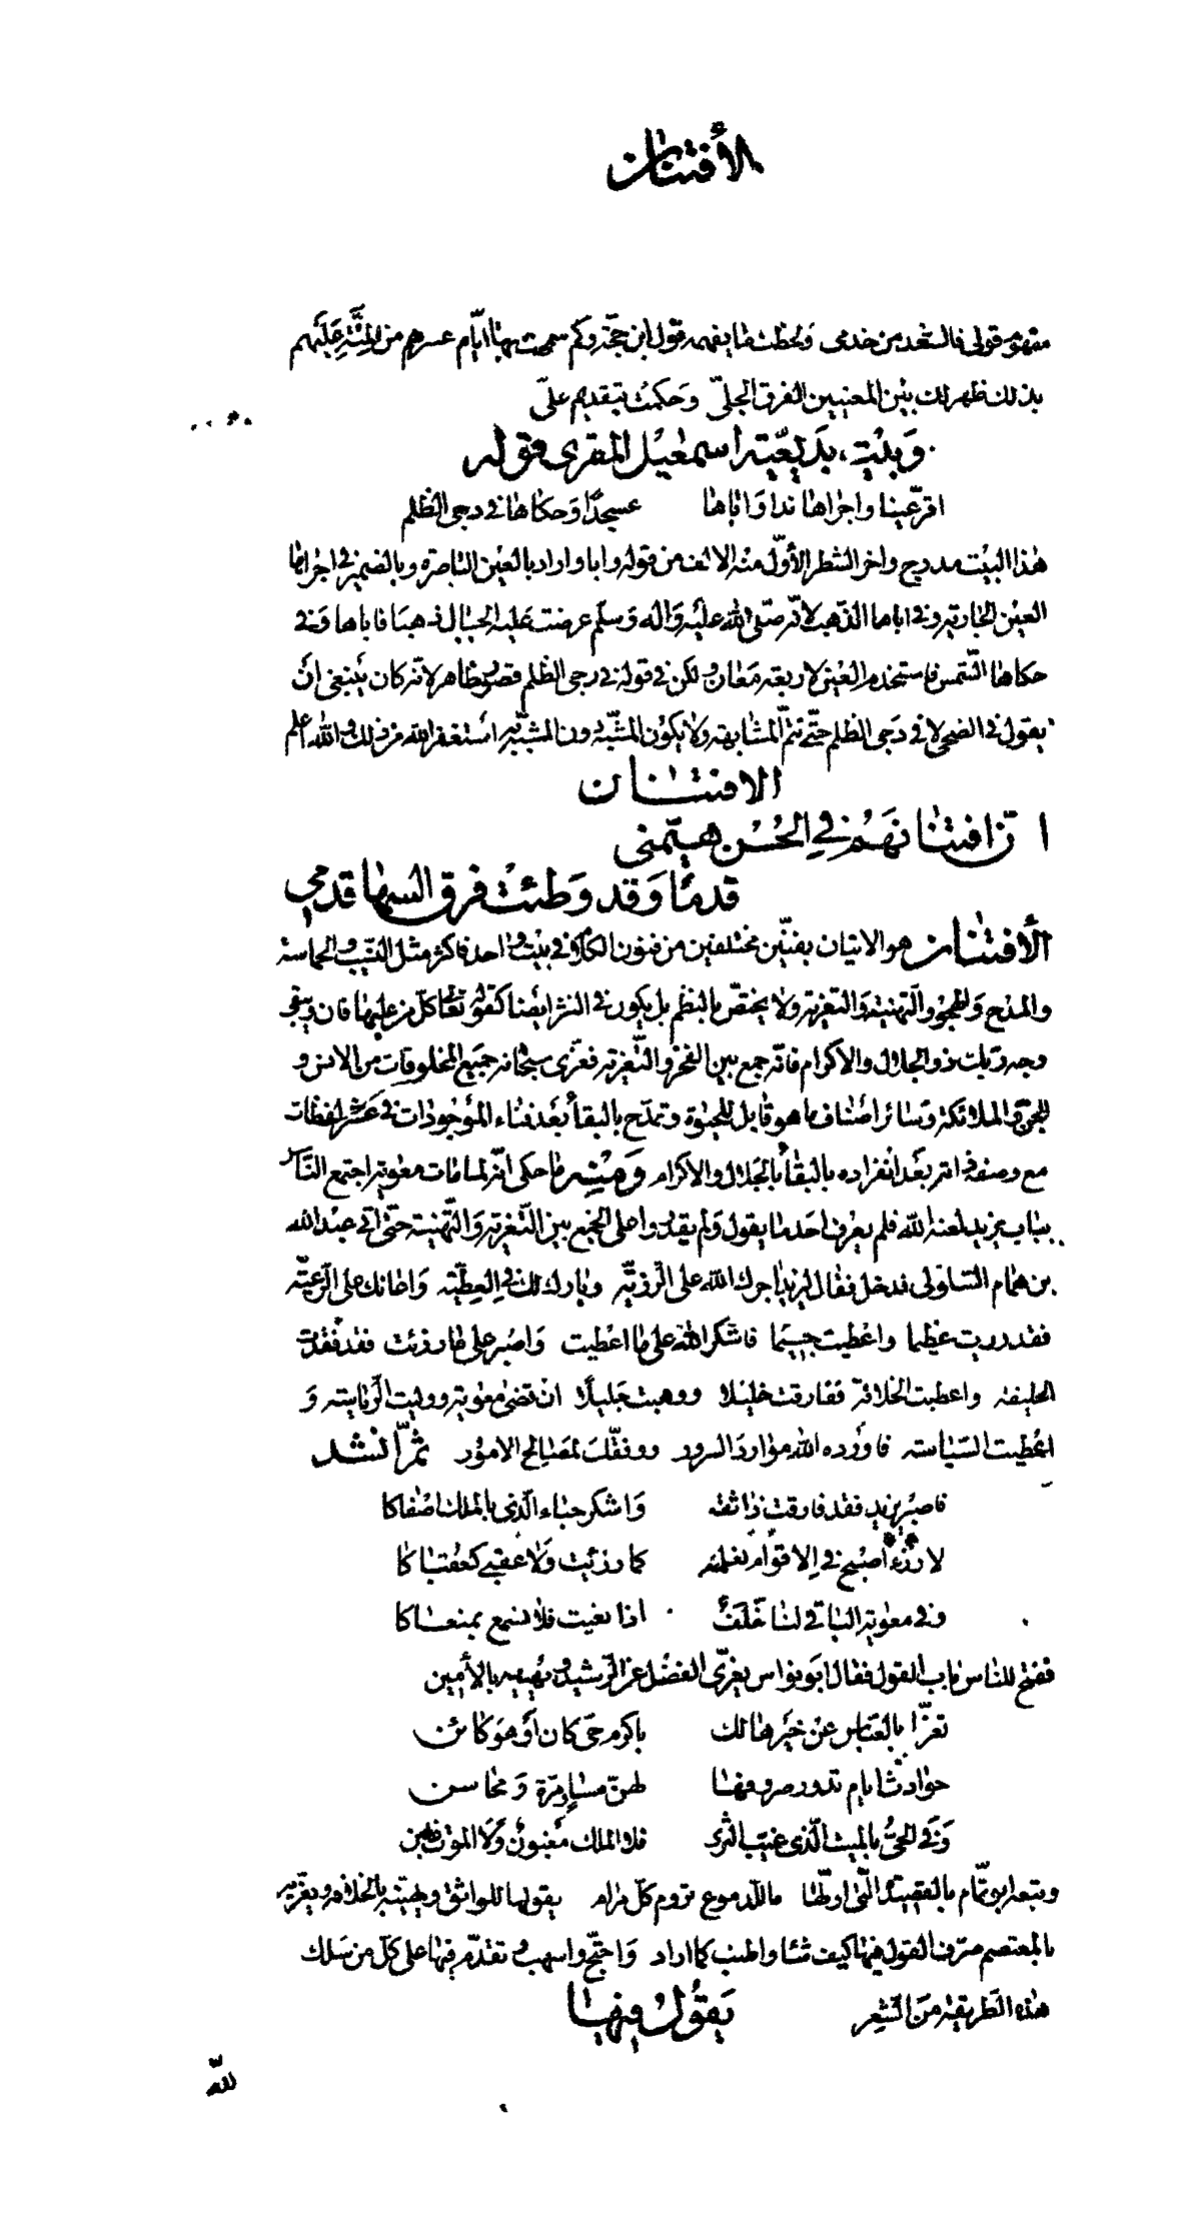 الأفتنان
مفهوم قولي فالسعد من خدمى ولحظت ما يفهمه قول ابن حجة وكم سمحت بها ايّام عسرهم من المنّة عليهم
بذلك ظهر لك بين المعنيين الفرق الجلىّ وحكمت بتقديم علىّ
وبيت بديعيّة اسمعيل المقرى قوله
اقر عينا واجراها ندا واباها عسجدا وحكاها في دجى الظلم
هذا البيت مدرج واخر الشطر الأوّل منه الالف من قوله وابا واراد بالعين الناصرة وبالضمير في اجراها
العين الجارية وفى اباها الذّهب لانّه صلّى الله عليه واله وسلّم عرضت عليه الجبال ذهبا فاباها وفى
حكاها الشّمس فاستخدم العين لاربعة معان ولكن في قوله في دجى الظلم قصور ظاهر لانّه كان ينبغى أن
يقول في الضحى لا في دجى الظلم حتّى تتمّ المشابهة ولا يكون المشبّه دون المشبّه به استغفر الله من ذلك والله اعلم
الافتنان
انّ افتنانهم في الحسن هيّمنى
قدما وقد وطئت فرق السها قدمي
الأفتنان هو الاتيان بفنّين مختلفين من فنون الكلام في بيت واحد فاكثر مثل النسيب والحماسة
والمدح والهجو والتهنية والتعزية ولا يختصّ بالنظم بل يكون في النثر ايضا كقوله تعالى كلّ من عليها فان ويبقى
وجه ربك ذو الجلال والاكرام فانّه جمع بين الفخر والتّعزية فعزّى سبحانه جميع المخلوقات من الانس و
الجن والملائكة وسائر اصناف ما هو قابل للحيوة وتمدّح بالبقاء بعد فناء الموجودات في عشر لفظات
مع وصفه ذاته بعد انفراده بالبقاء بالجلال والاكرام ومنه ما حكى انّه لما مات معوية اجتمع النّاس
بباب يزيد لعنه الله فلم يعرف احد ما يقول ولم يقدروا على الجمع بين التّعزية والتّهنية حتى اتى عبد الله
بن همام السّلولى فدخل فقال يا يزيد اجرك الله على الرّزيّة وبارك لك في العطيّة واعانك على الرّعيّة
فقد رزيت عظيما واعطيت جسيما فاشكر الله على ما اعطيت واصبر على ما رزئت فقد فقدت
الخليفة واعطيت الخلافة ففارقت خليلا ووهبت جليلا اذ قضى معوية ووليت الرّياسة و
اعطيت السّياسة فاورده الله موارد السرور ووفقّك لمصالح الامور ثمّ انشد
فاصبر يزيد فقد فارقت ذا ثقة واشكر حباء الّذى بالملك اصفاكا
لا رزء اصبح في الاقوام نعلمه كما رزئت ولا عقبى كعقباكا
وفى معوية الباقى لنا خلف اذا نعيت فلا نسمع بمنعاكا
ففتح للناس باب القول فقال ابو نواس يعزّى الفضل عن الرّشيد ويهنيه بالأمين
تعزّ ابا العبّاس عن خير هالك باكرم حىّ كان أو هو كائن
حوادث ايام تدور صروفها لهنّ مساو مرّة ومحاسن
وفى الحىّ بالميت الّذى غيّب الثرى فلا الملك مغبون ولا الموت غابن
وتبعه ابو تمّام بالقصيدة الّتى اوّلها ما للدموع تروم كلّ مرام يقولها للواثق ويهنيه بالخلافة ويعزّيه
بالمعتصم صرّف القول فيها كيف شاء واطنب كما اراد واحتجّ واسهب وتقدّم فيها على كلّ من سلك
هذه الطّريقة من الشّعر يقول فيها
للّه